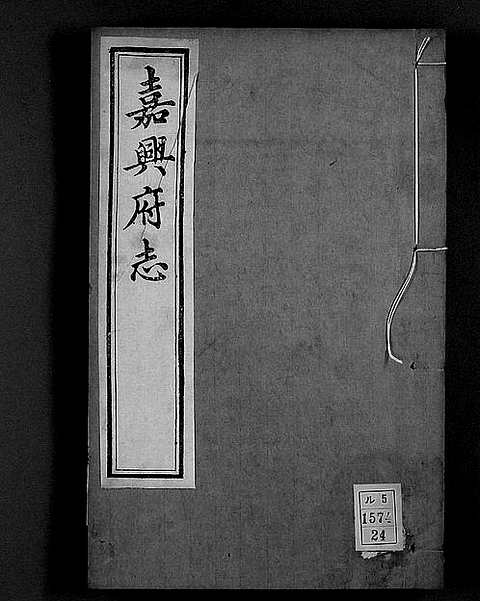 嘉興府志
ル 5
24